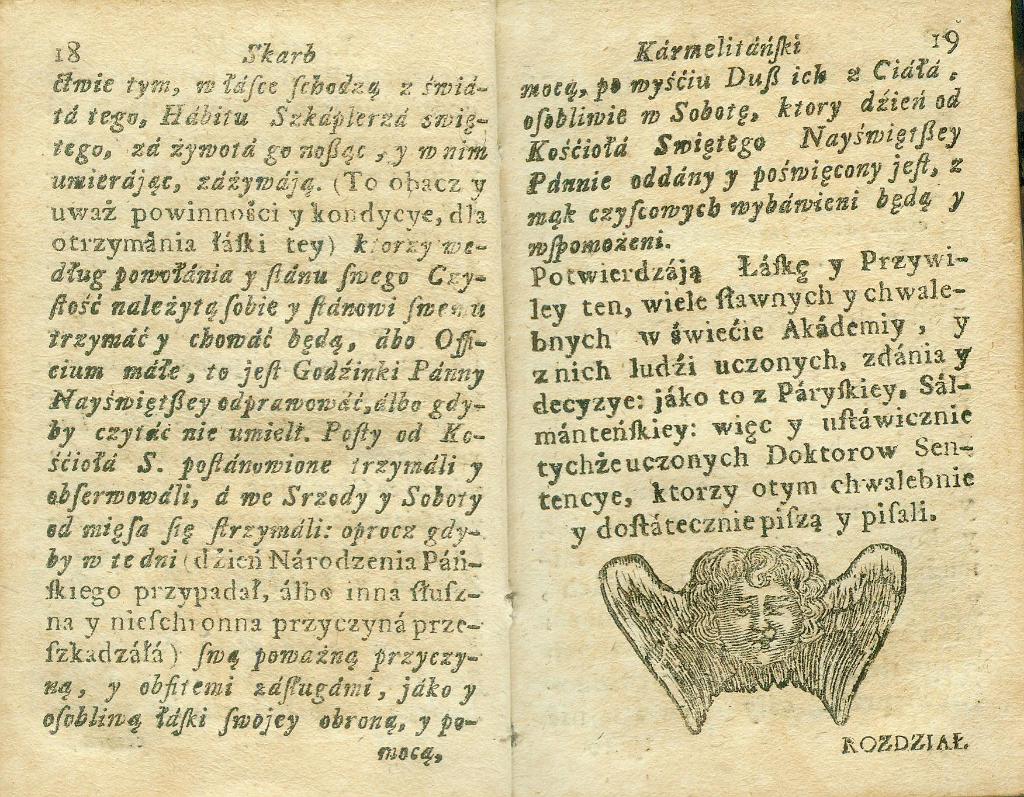 18 Skarb
ćtwie tym, w łásce ſchodzą z świá-
tá tego, Hábitu Szkáplerzá świę-
tego, zá żywotá go noßąc, y w nim
umieráiąc, záżywáją. (To obacz y
uważ powinności y kondycye, dla
otrzymánia łáſki tey) ktorzy we-
dług powołánia y ſtánu ſwego Czy-
ſtość należytą ſobie y ſtánowi ſwemu
trzymáć y chowáć będą, ábo Offi-
cium máłe, to jeſt Godźinki Pánny
Nayświętßey odprawowáć, álbo gdy-
by czytáć nie umieli. Poſty od Ko-
śćiołá S. poſtánowione trzymáli y
obſerwowáli, á we Srzody y Soboty
od mięſa ſię ſtrzymáli: oprocz gdy-
by w te dni (dźień Národzenia Páń-
ſkiego przypadał, álbo inna ſłuſz-
na y nieſchronna przyczyná prze-
ſzkadzáłá) ſwą poważną przyczy-
ną, y obfitemi záſługámi, jáko y
oſobliwą łáſki ſwojey obroną, y po-
mocą,
Kármelitáńſki 19
mocą, po wyśćiu Duß ich z Ciáłá,
oſobliwie w Sobotę, ktory dźień od
Kośćiołá Swiętego Nayświętßey
Pánnie oddány y poświęcony jeſt, z
mąk czyſcowych wybáwieni będą y
wſpomożeni.
Potwierdzáją Łáſkę y Przywi-
ley ten, wiele ſławnych y chwale-
bnych w świećie Akádemiy, y
z nich ludźi uczonych, zdánia y
decyzye: jáko to z Páryſkiey, Sál-
mánteńſkiey: więc y uſtáwicznie
tychże uczonych Doktorow Sen-
tencye, ktorzy otym chwalebnie
y doſtátecznie piſzą y piſali.
ROZDZIAŁ